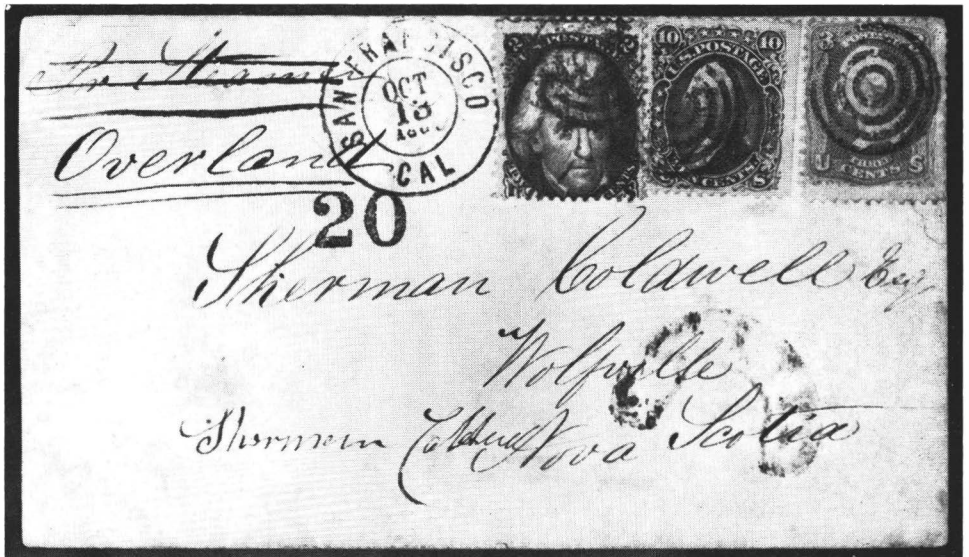 Pr Steamer
Overland
SAN FRANCISCO
OCT
13
CAL
20
2 POSTAGE 2
10 10
U.S. POSTAGE
TEN CENTS
3
U THREE S
CENTS
Sherman Coldwell Esq
Wolfville
Nova Scotia
Sherman Coldwell